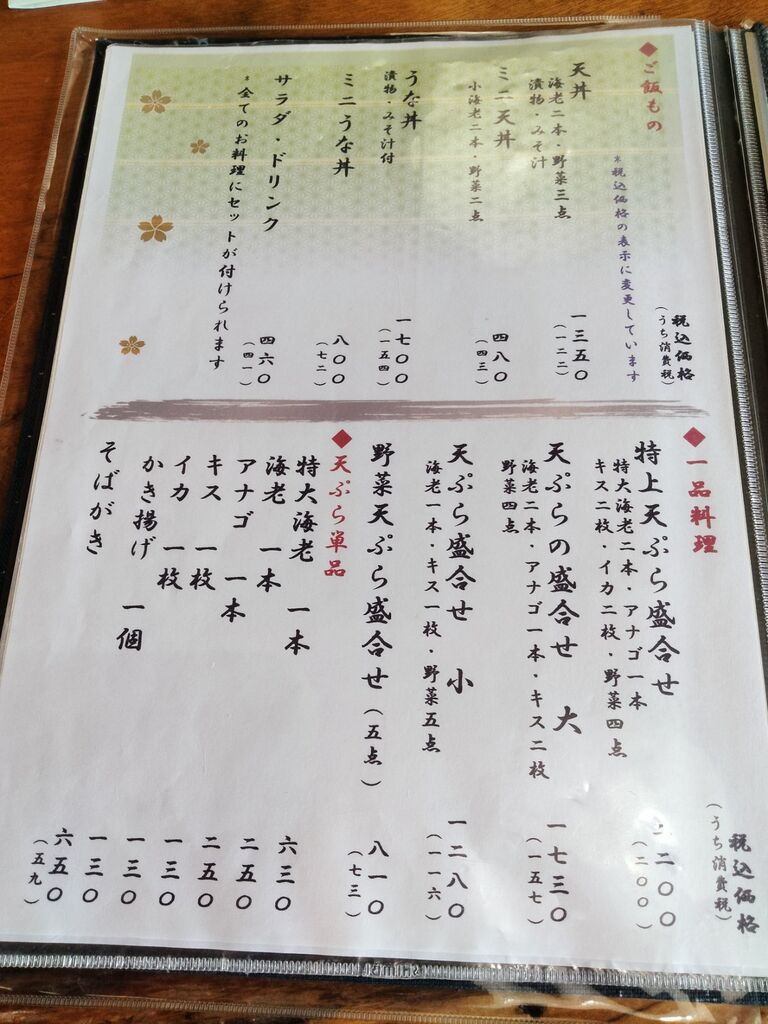 ◆ご飯もの
*税込価格の表示に変更しています
税込価格
(うち消費税)
天丼
海老二本・野菜三点
漬物・みそ汁
一三五〇
(一二二)
ミニ天丼
小海老二本・野菜二点
四八〇
(四三)
うな丼
漬物・みそ汁付
一七〇〇
(一五四)
ミニうな丼
八〇〇
(七二)
サラダ・ドリンク
*全てのお料理にセットが付けられます
四六〇
(四一)
◆一品料理
税込価格
(うち消費税)
特上天ぷら盛合せ
特大海老二本・アナゴ一本
キス二枚・イカ二枚・野菜四点
二二〇〇
(二〇〇)
天ぷらの盛合せ 大
海老二本・アナゴ一本・キス二枚
野菜四点
一七三〇
(一五七)
天ぷら盛合せ 小
海老一本・キス一枚・野菜五点
一二八〇
(一一六)
野菜天ぷら盛合せ(五点)
八一〇
(七三)
◆天ぷら単品
特大海老 一本
六三〇
海老 一本
二五〇
アナゴ 一本
二五〇
キス 一枚
一三〇
イカ 一枚
一三〇
かき揚げ 一個
一三〇
そばがき
六五〇
(五九)